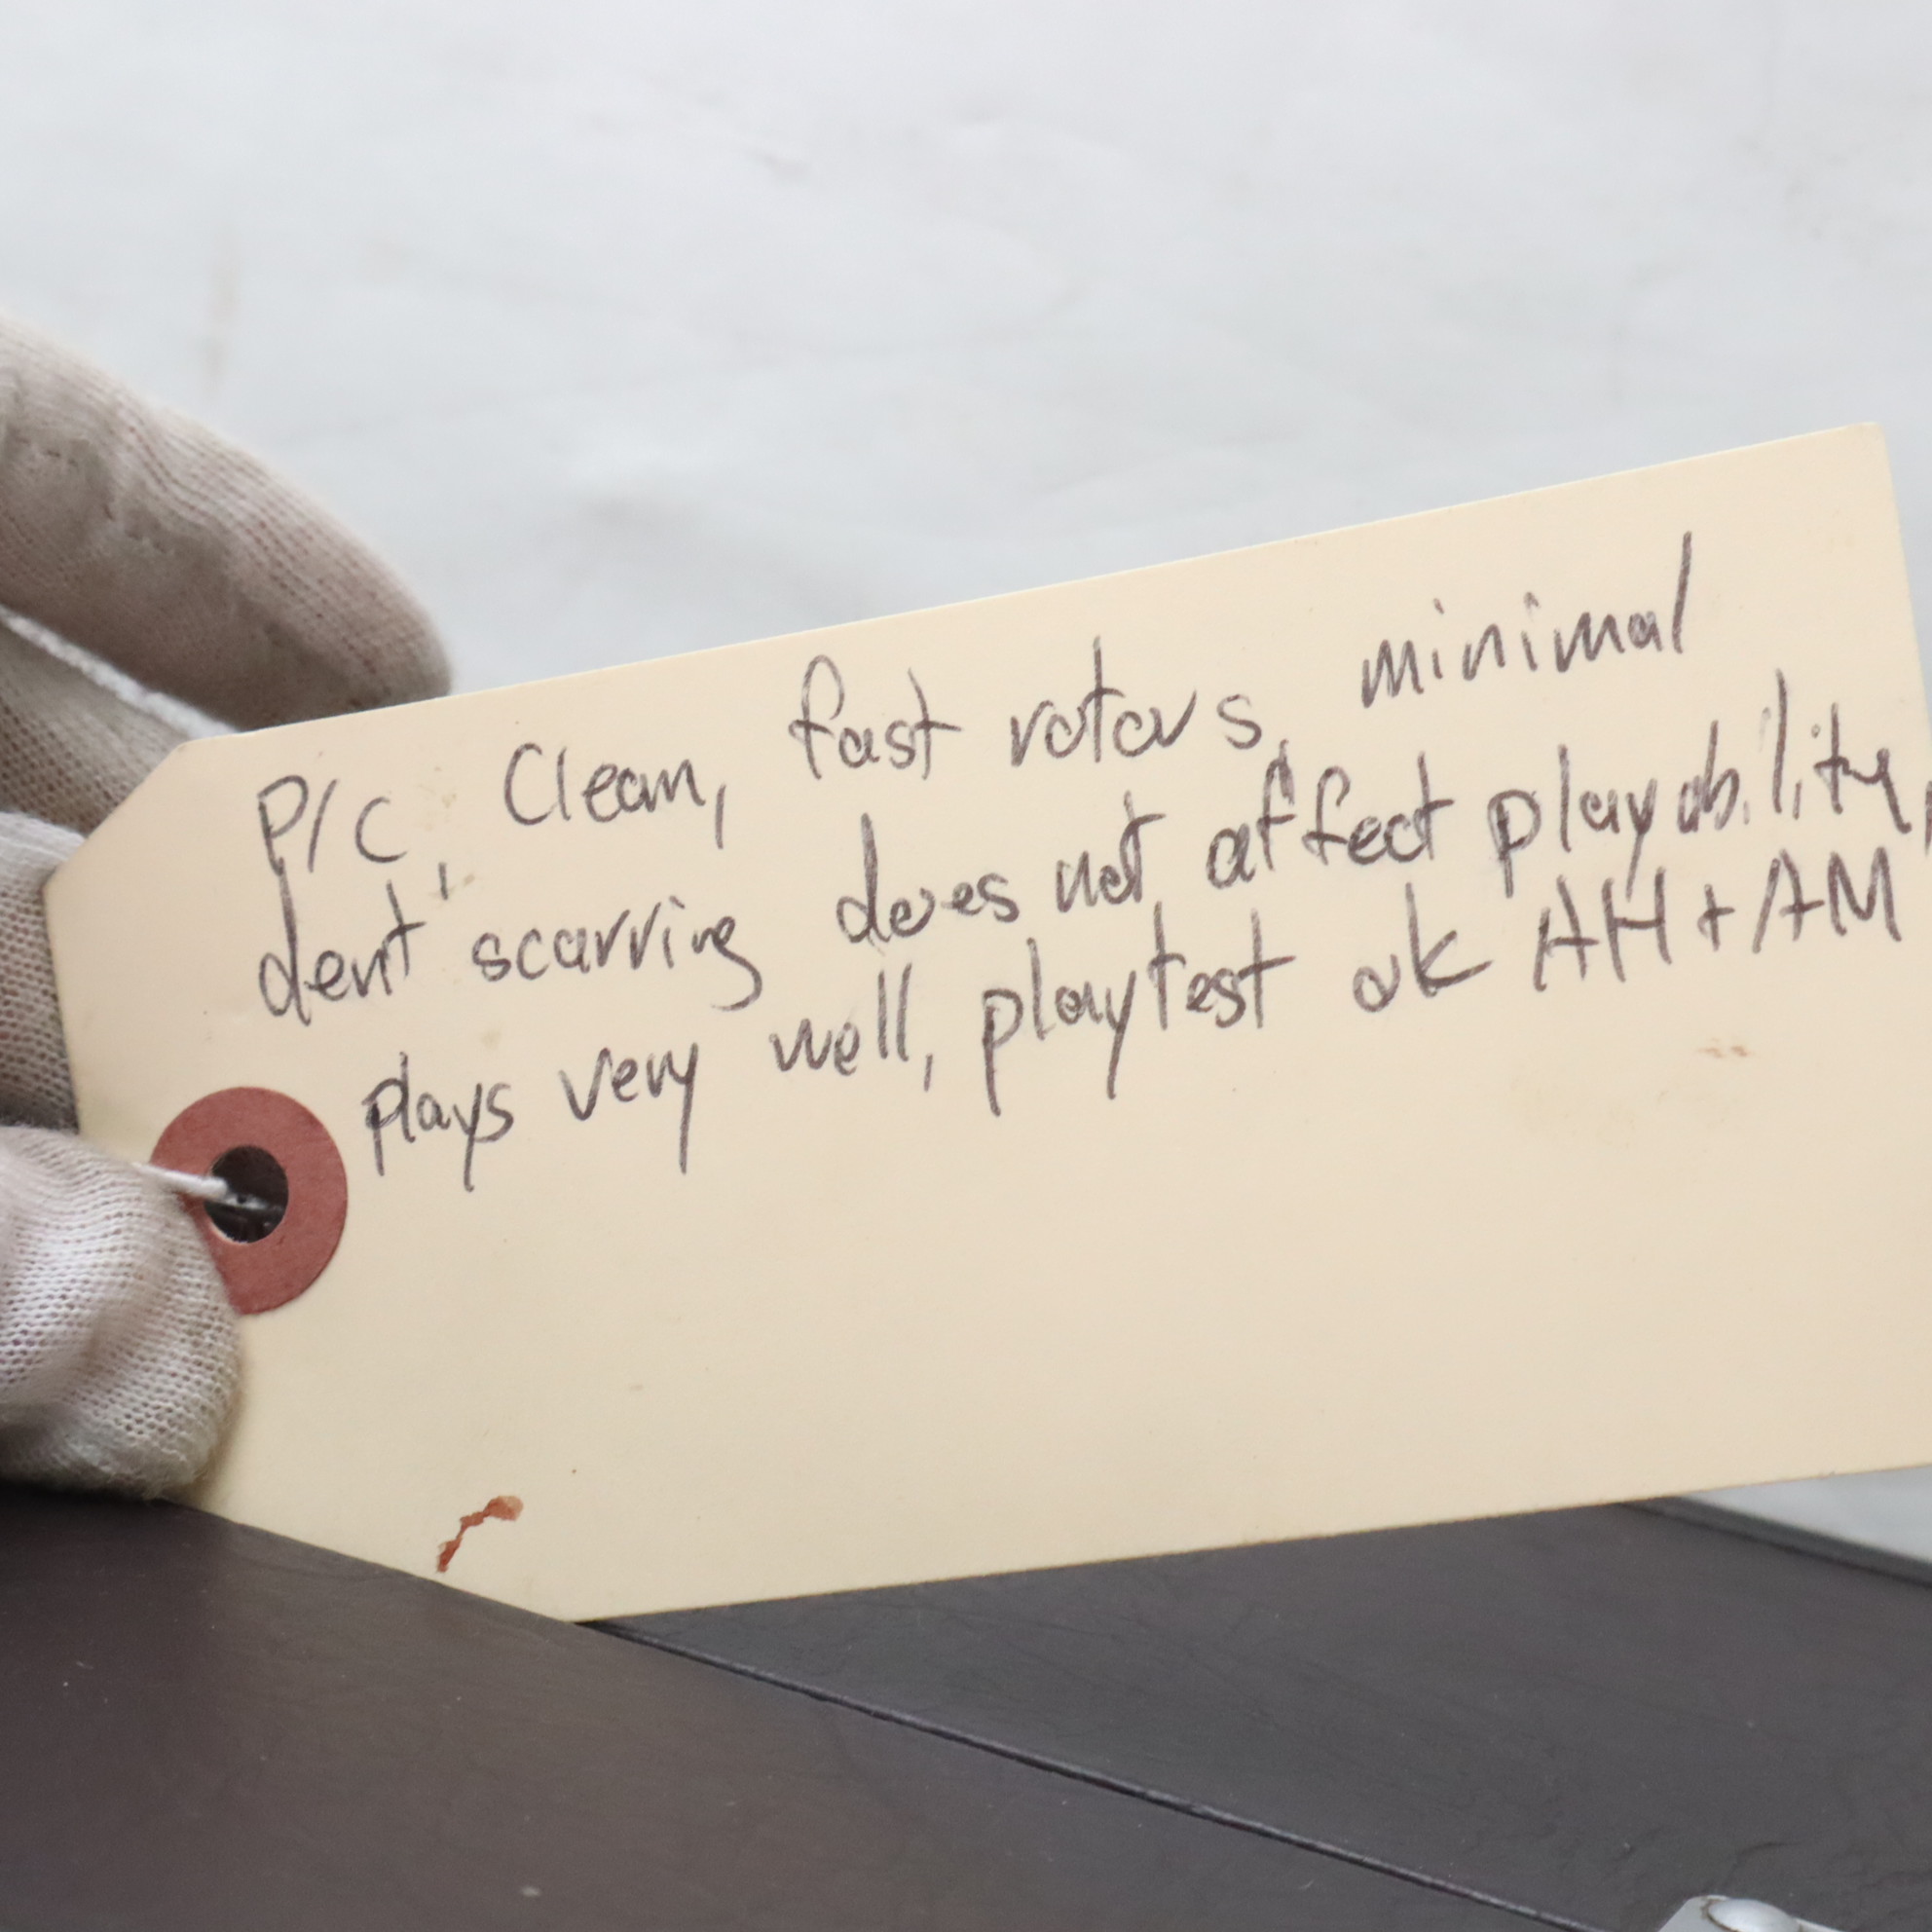 P/C, Clean, fast rotors, minimal
dent scarring does not affect playability,
plays very well, playtest ok AH + AM